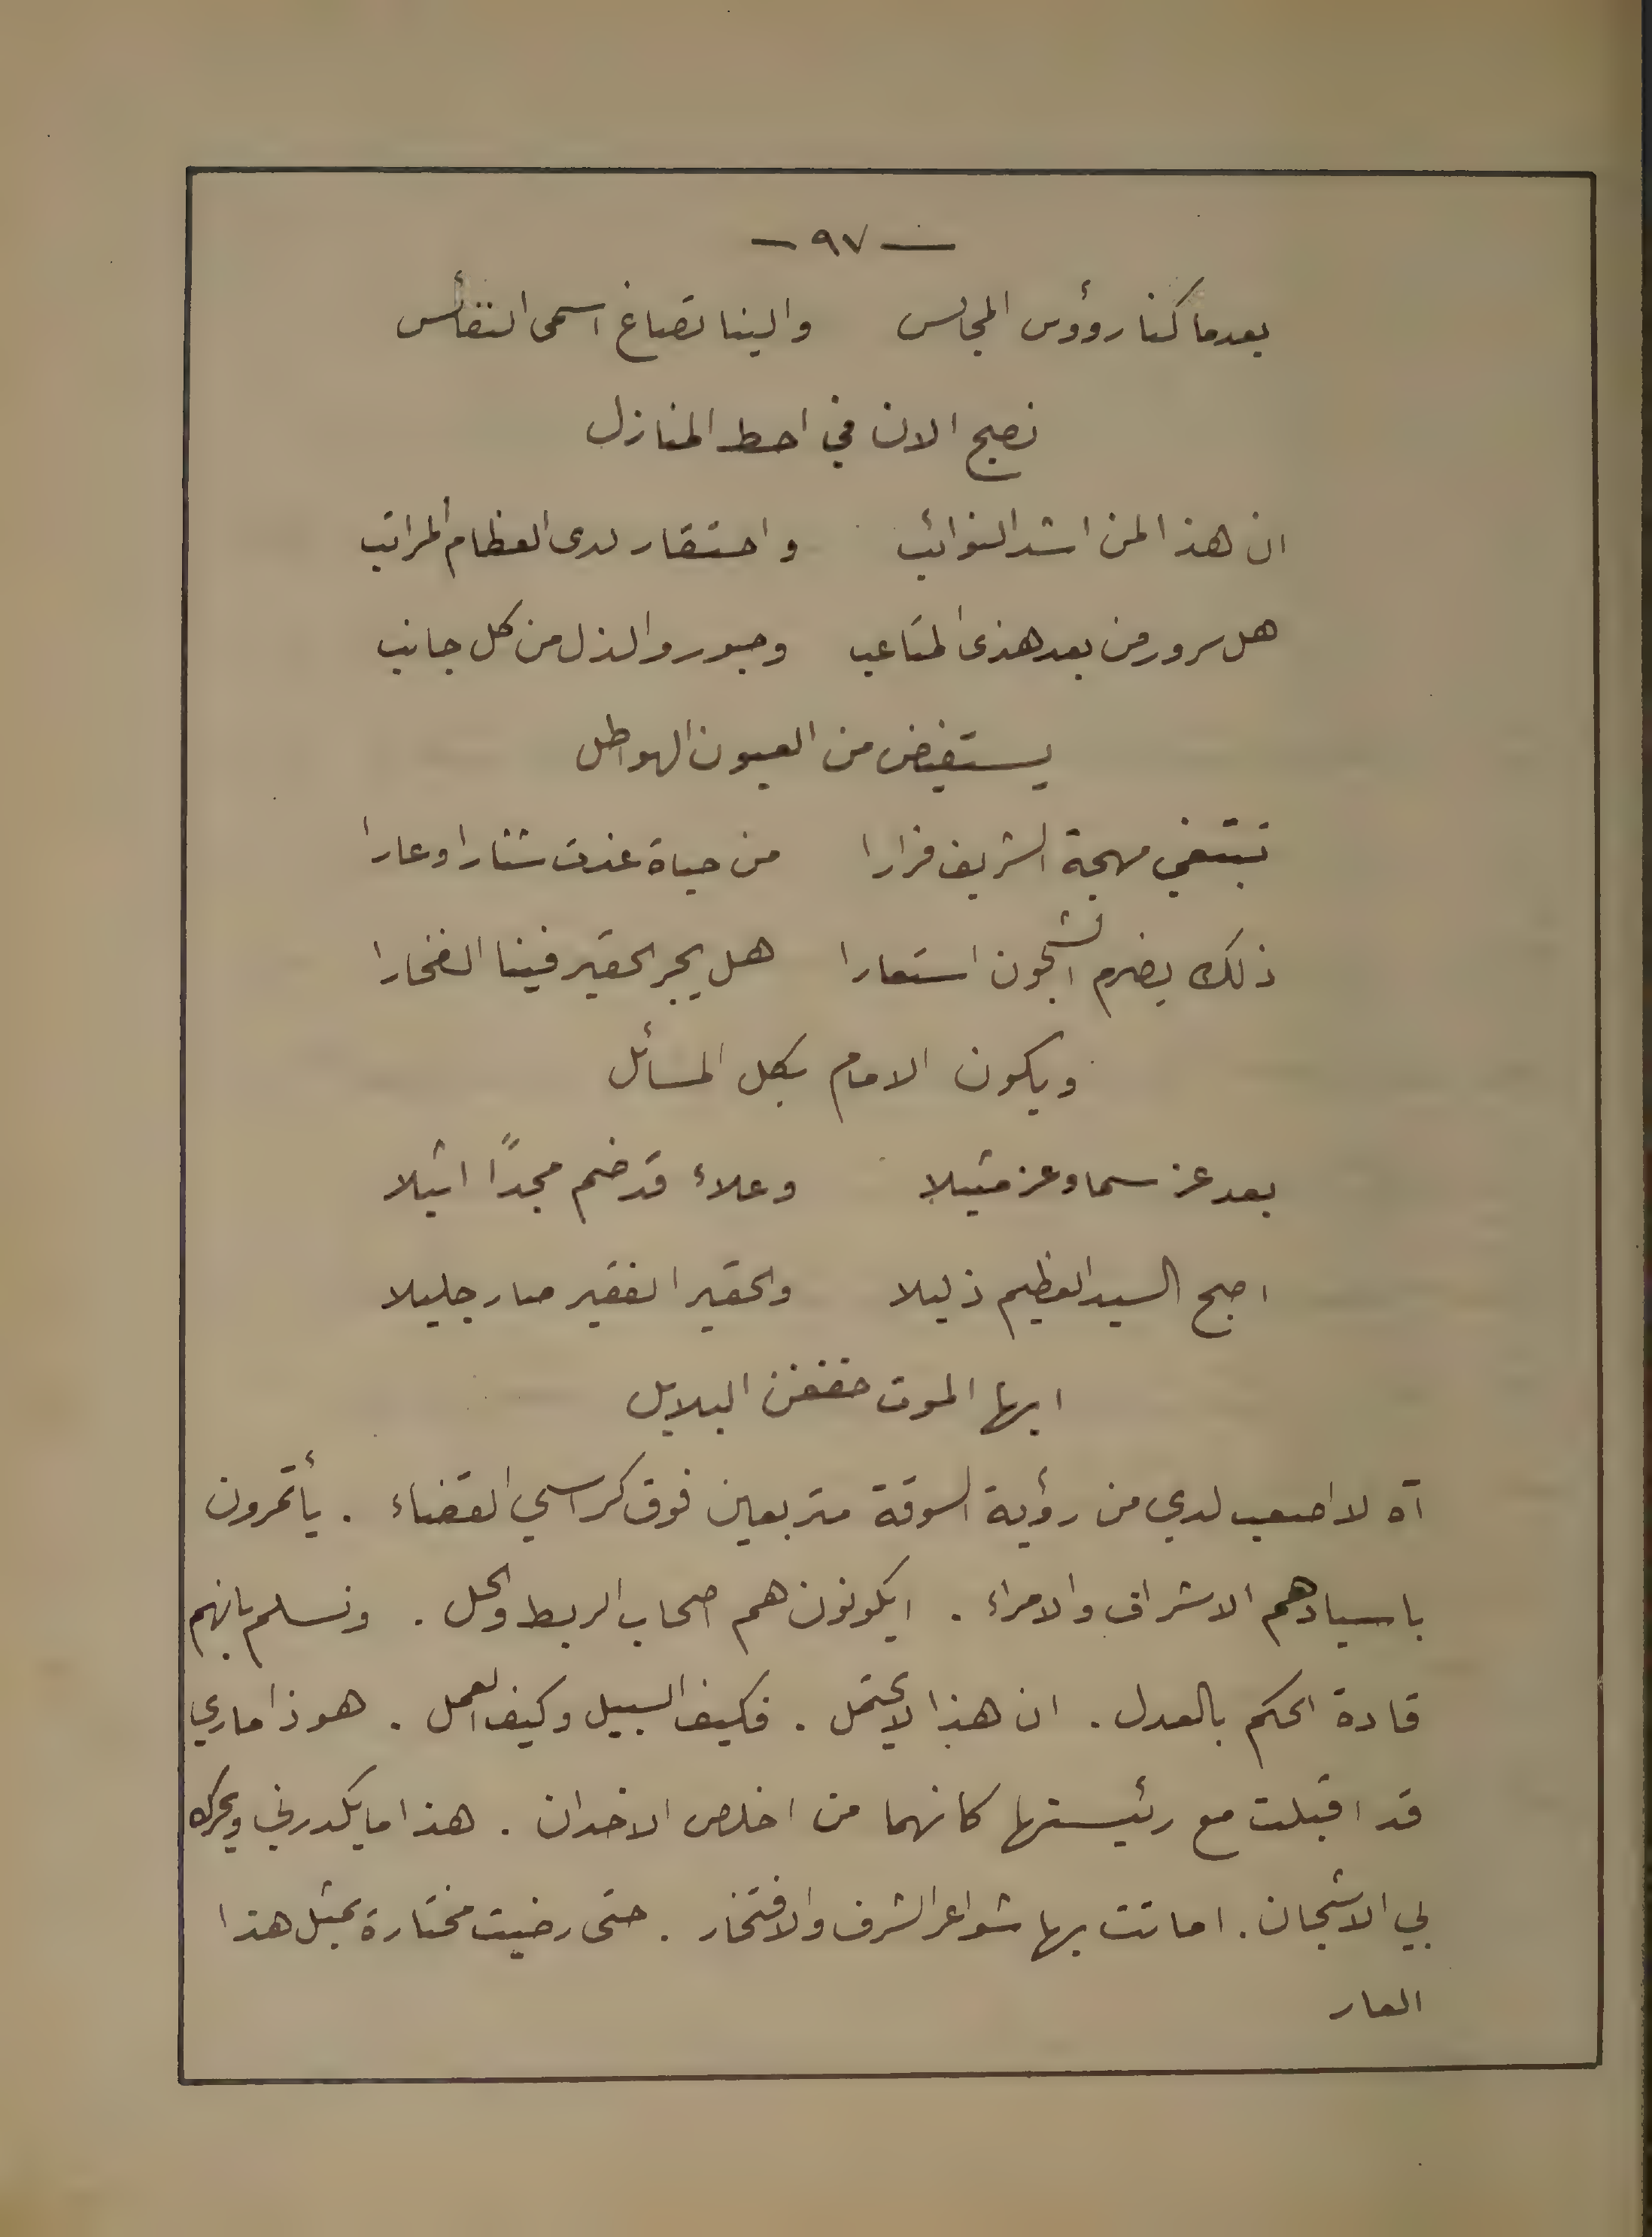 — ٩٧ —
بعدما كنا رؤوس المجالس والينا تصاغ اسمى النفائس
نصبح الان في احط المنازل
ان هذا لمن اشد النوائب واحتقار لدى العظام المراتب
هل سرور من بعد هذى المتاعب وحبور والذل من كل جانب
يستفيض من العيون الهواطل
تبتغي مهجة الشريف فرارا من حياة غدت شنارا وعارا
ذلك يضرم الشجون استعارا هل يجر الحقير فينا الفخارا
ويكون الامام بكل المسائل
بعد عز سما وعز مثيلا وعلاء قد ضم مجدًا اثيلا
اصبح السيد العظيم ذليلا والحقير الفقير صار جليلا
ايها الموت خففن البلابل
آه لا اصعب لدي من رؤية السوقة متربعين فوق كراسي القضاء . يأتمرون
باسيادهم الاشراف والامراء . ايكونون هم اصحاب الربط والحل . ونسلم بانهم
قادة الحكم بالعدل . ان هذا لا يحتمل . فكيف السبيل وكيف العمل . هوذا ماري
قد اقبلت مع رئيستها كانهما من اخلص الاخدان . هذا ما يكدرني ويحرك
بي الاشجان . اماتت بها شواعر الشرف والافتخار . حتى رضيت مختارة بمثل هذا
العار